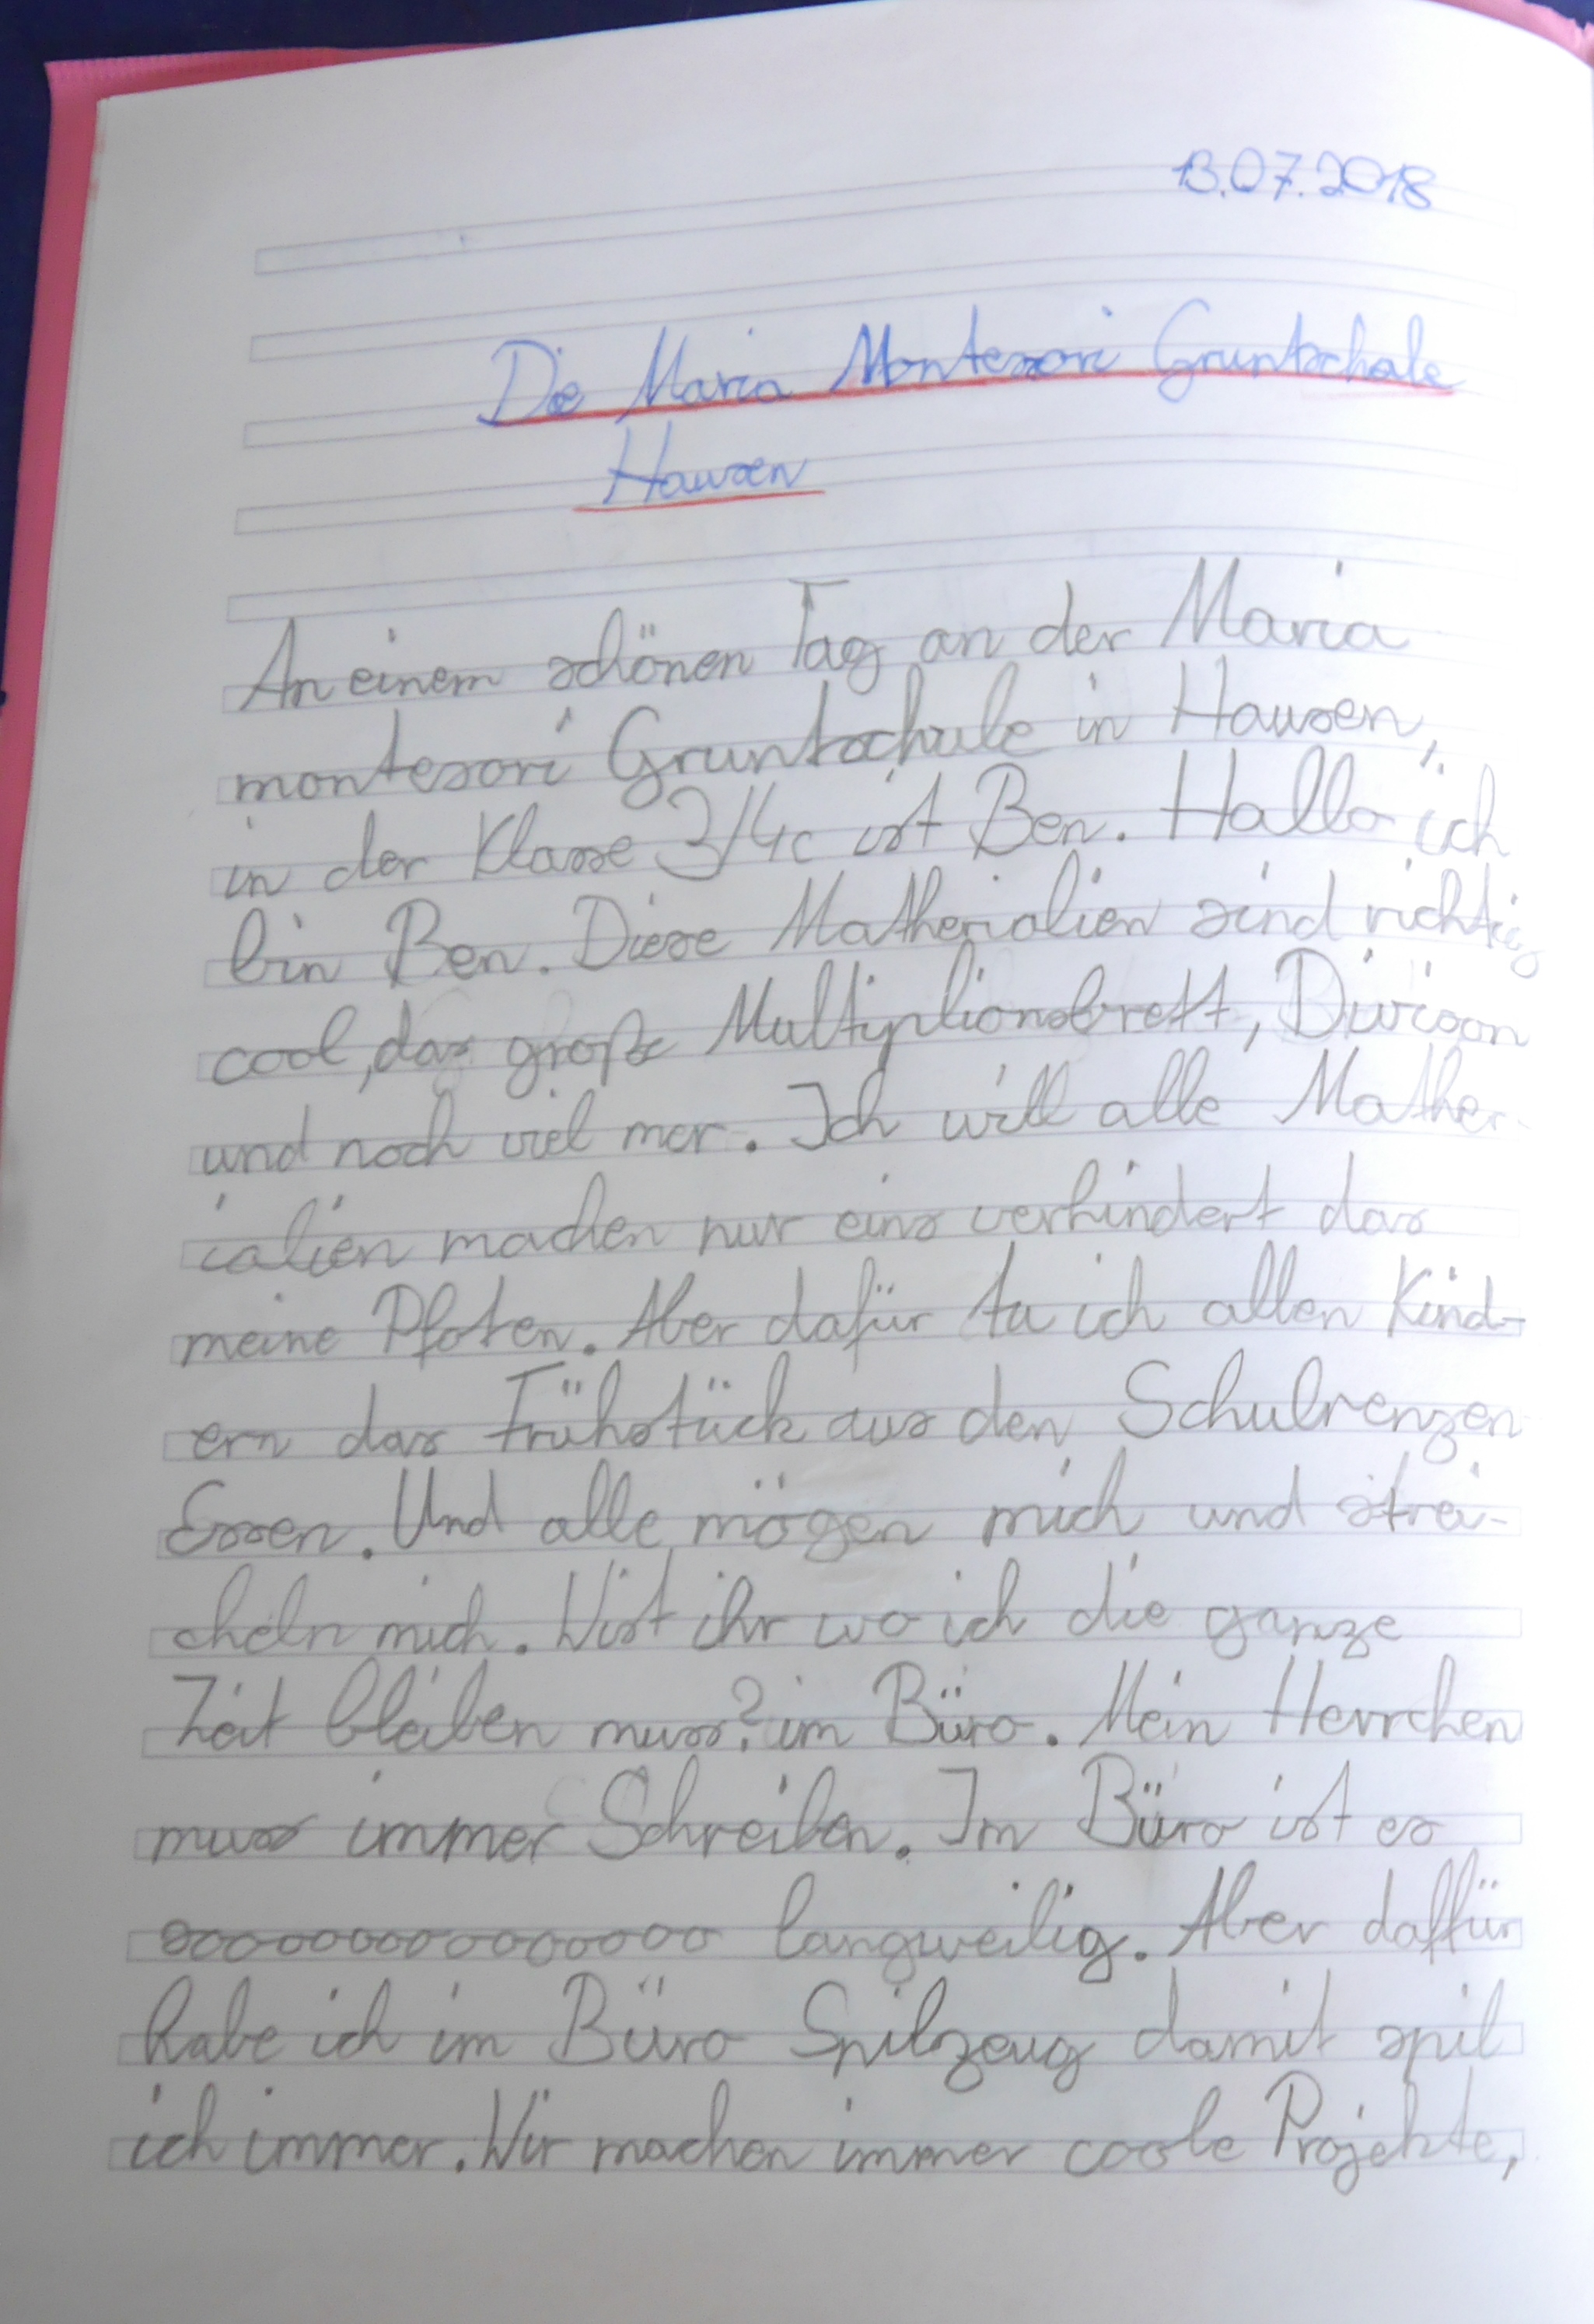 13.07.2018
Die Maria Montesori Gruntschule
Hausen
An einem schönen Tag an der Maria
montesori Gruntschule in Hausen,
in der Klasse 3/4c ist Ben. Hallo ich
bin Ben. Diese Matherialien sind richtig
cool, das große Multiplionsbrett, Divison
und noch viel mer. Ich will alle Mather-
ialien machen nur eins verhindert das
meine Pfoten. Aber dafür tu ich allen Kind-
ern das Frühstück aus den Schulrenzen
Essen. Und alle mögen mich und strei-
cheln mich. Wist ihr wo ich die ganze
Zeit bleiben muss? im Büro. Mein Herrchen
muss immer Schreiben. Im Büro ist es
sooooooooooooooo langweilig. Aber daffür
habe ich im Büro Spilzeug damit spil
ich immer. Wir machen immer coole Projekte,